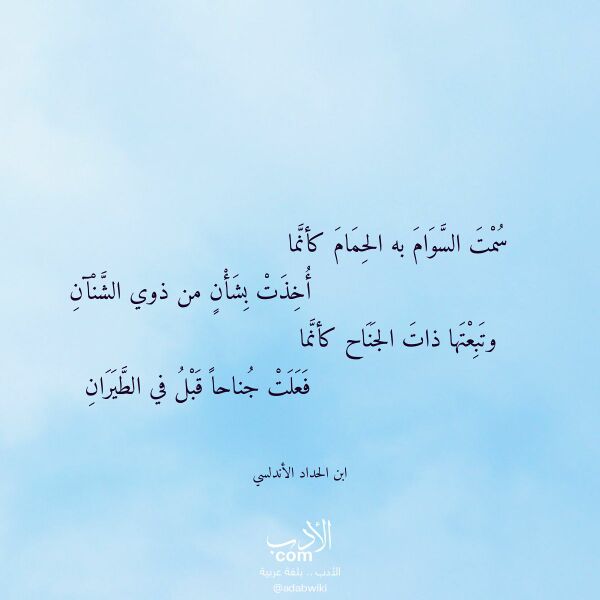 سُمْتَ السَّوَامَ به الحِمَامَ كأنَّما
أُخِذَتْ بِشَأْنٍ من ذوي الشَّنْآنِ
وتَبِعْتَها ذاتَ الجَنَاح كأنَّما
فَعَلَتْ جُناحاً قَبْلُ في الطَّيَرَانِ
ابن الحداد الأندلسي
الأدب
.com
الأدب .. بلغة عربية
@adabwiki